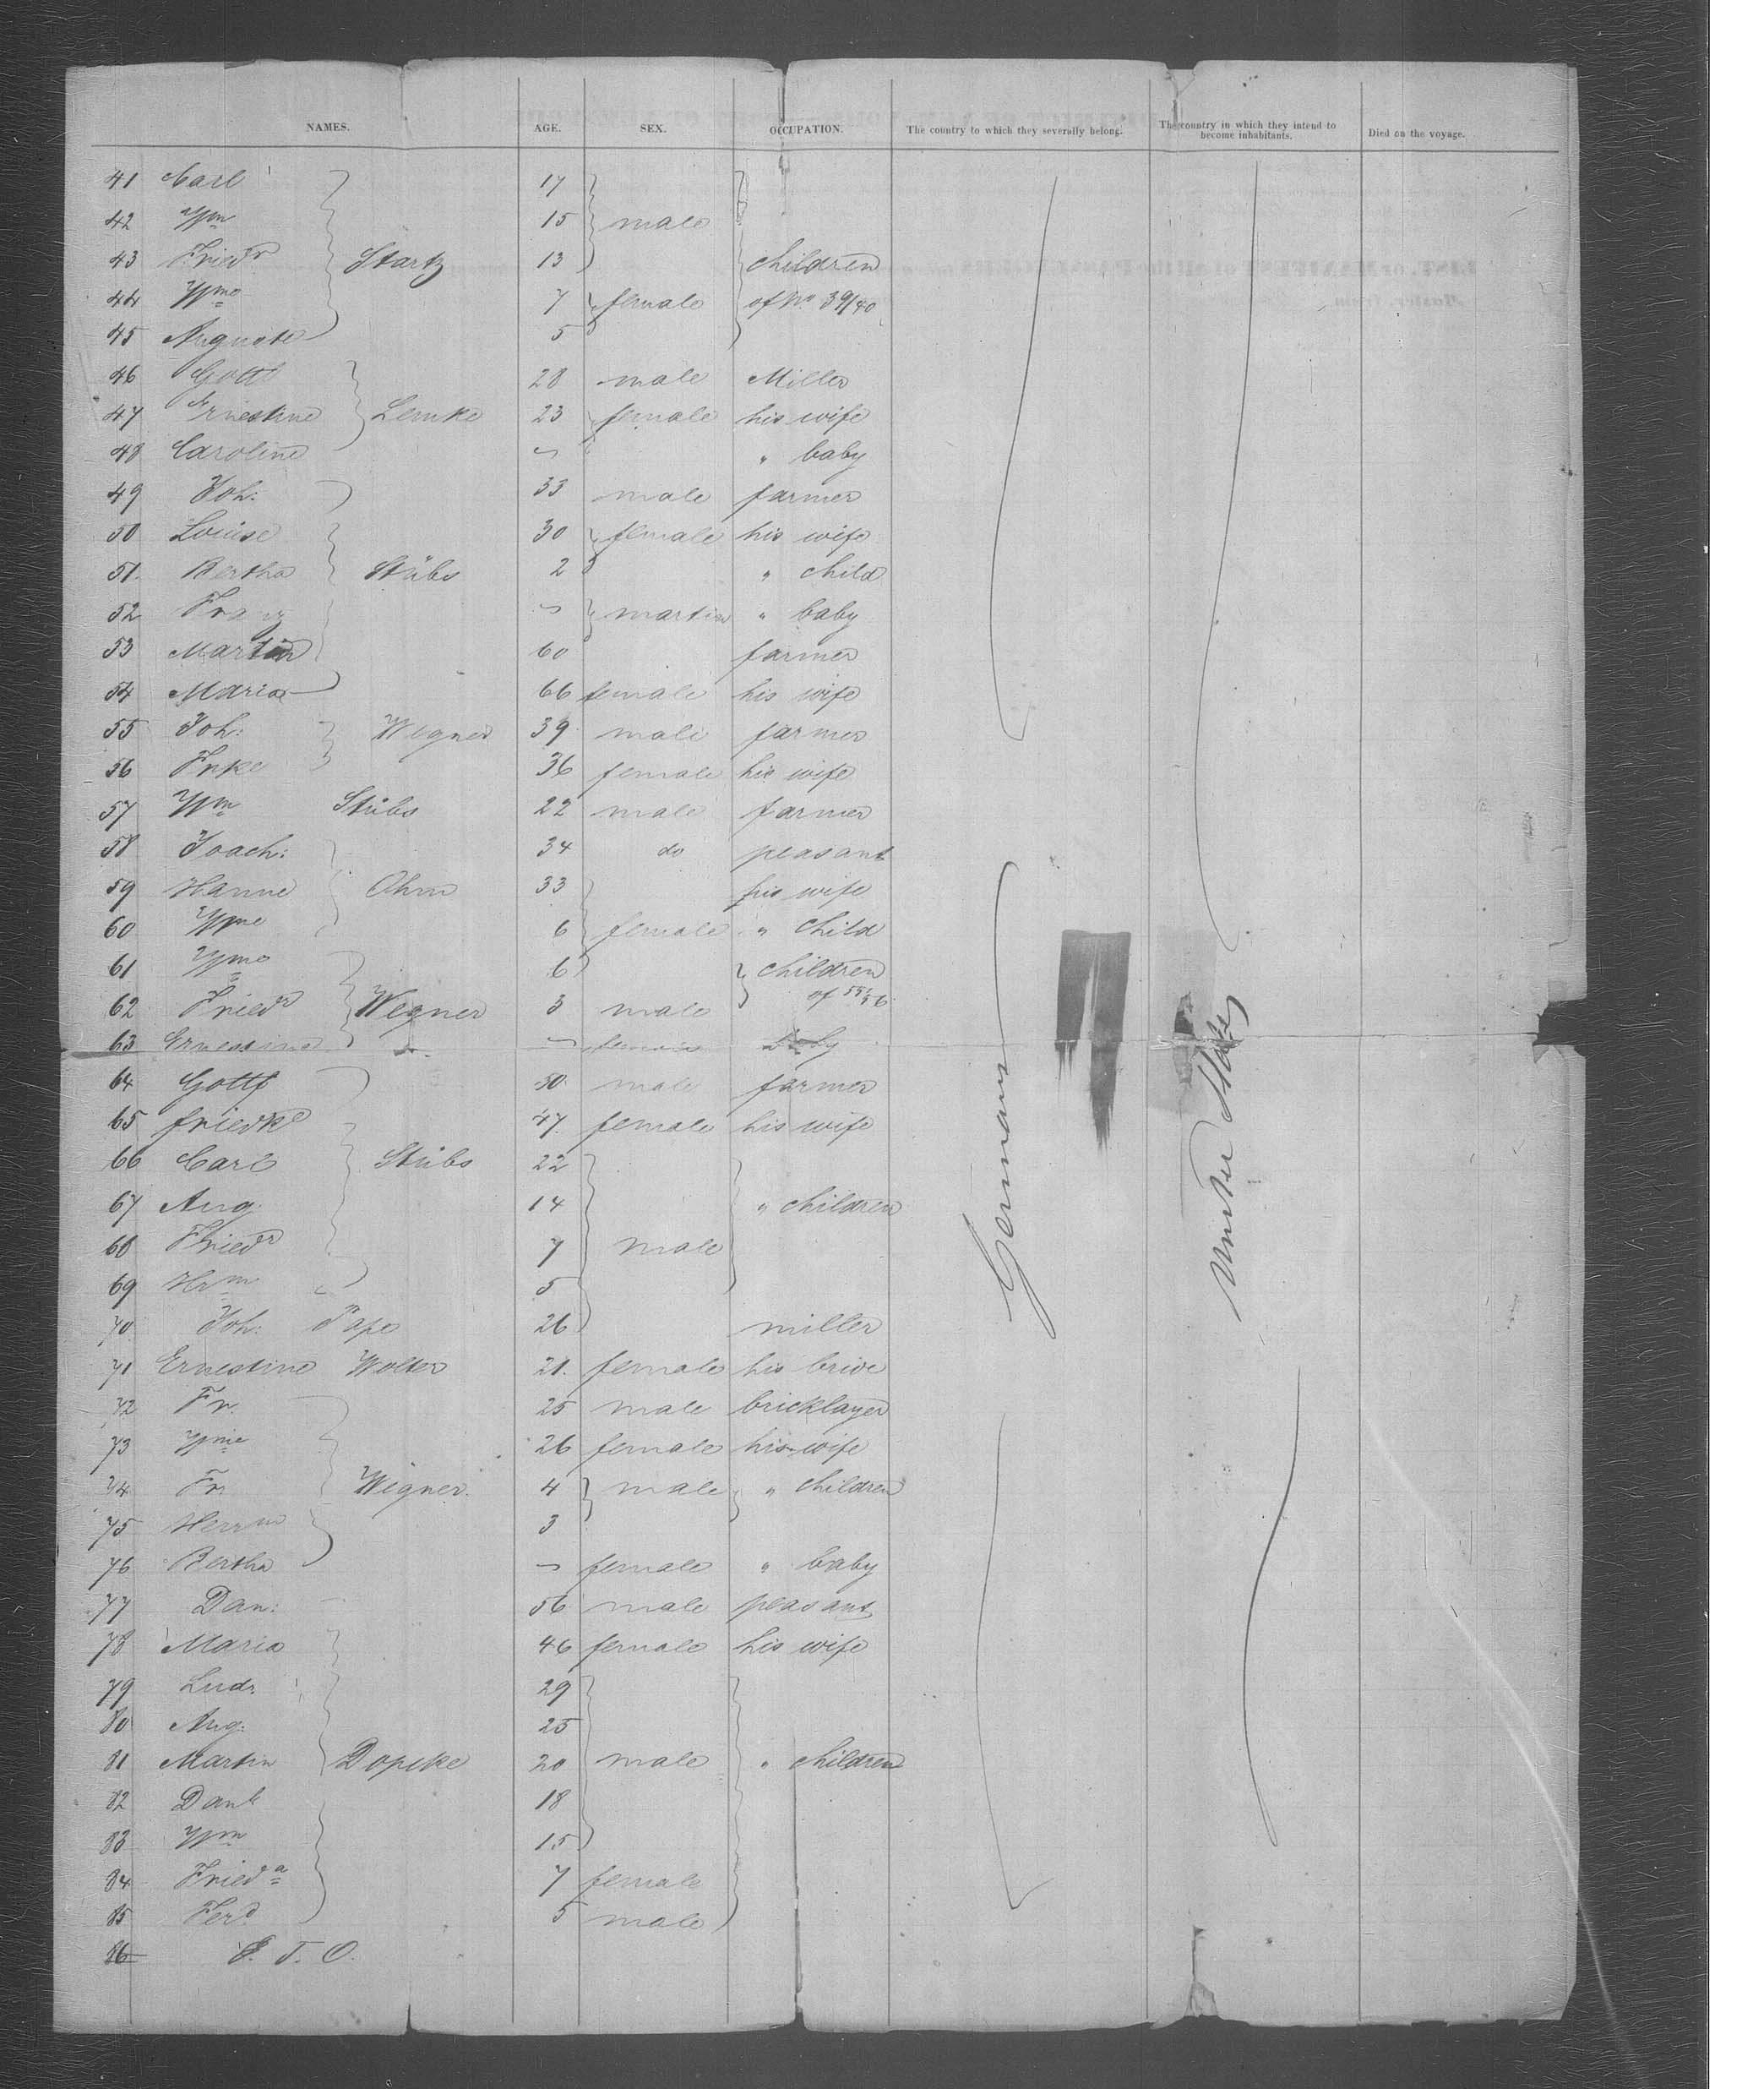 NAMES. AGE. SEX. OCCUPATION. The country to which they severally belong. The country in which they intend to become inhabitants. Died on the voyage.
41 Carl 17
42 Wm 15 male
43 Friedr Startz 13 children
44 Wme 7 female of No 39/40
45 Auguste 5
46 Gottl 28 male Miller
47 Ernestine Lemke 23 female his wife
48 Caroline " baby
49 Joh: 33 male farmer
50 Louise 30 female his wife
51 Bertha Stübs 2 " child
52 Franz martin " baby
53 Martin 60 farmer
54 Maria 66 female his wife
55 Joh: Wegner 39 male farmer
56 Frke 36 female his wife
57 Wm Stübs 22 male farmer
58 Joach: 34 do peasant
59 Hanne Ohm 33 his wife
60 Wme 6 female " child
61 Wme 6 children
62 Friedr Wegner 3 male of 55/56
63 Ernestine female baby
64 Gottf 50 male farmer
65 friedke 47 female his wife
66 Carl Stübs 22
67 Aug. 14 " children
68 Friedr 7 male
69 Hrm 5
70 Joh: Pape 26 miller
71 Ernestine Wolter 21. female his bride
72 Fr. 25 male bricklayer
73 Wme 26 female his wife
74 Fr. Wegner. 4 male " children
75 Herrm 3
76 Bertha female " baby
77 Dan: 56 male peasant
78 Maria 46 female his wife
79 Ludr. 29
80 Aug. 25
81 Martin Dopcke 20 male " children
82 Danl 18
83 Wm 15
84 Frieda 7 female
85 Ferd 5 male
86 P. T. O.
Germany
United States